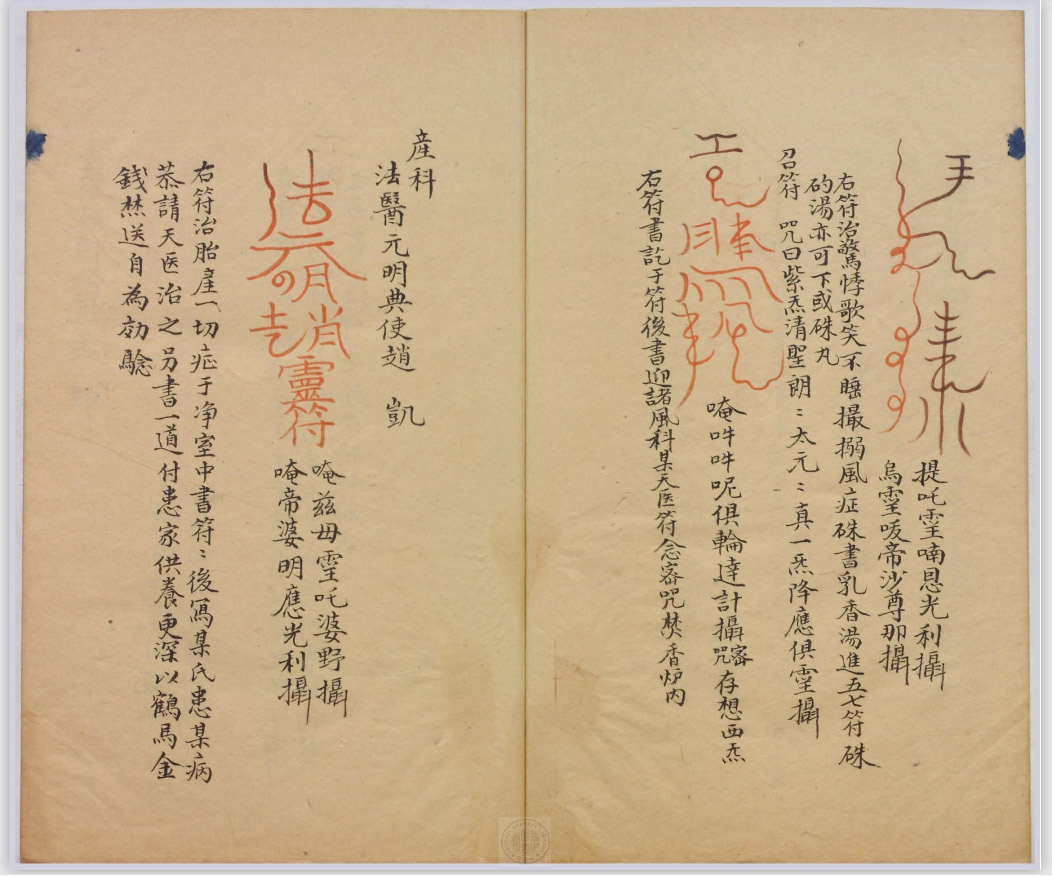 提吒霻喃恩光利攝
烏霻吺帝沙尊那攝
右符治驚悸歌笑不睡撮搦風症硃書乳香湯進五七符硃
砂湯亦可下或硃丸
召符　咒曰紫炁清聖朗〻太元〻真一炁降應俱霻攝
唵吽吽呢俱輪達計攝密咒存想西炁
右符書訖于符後書迎諸風科某天医符念密咒焚香炉内
産科
法醫元明典使趙　凱
靈符
唵兹毋霻吒婆野攝
唵帝婆明應光利攝
右符治胎産一切症于净室中書符〻後寫某氏患某病
恭請天医治之另書一道付患家供養更深以鶴馬金
錢焚送自為効驗